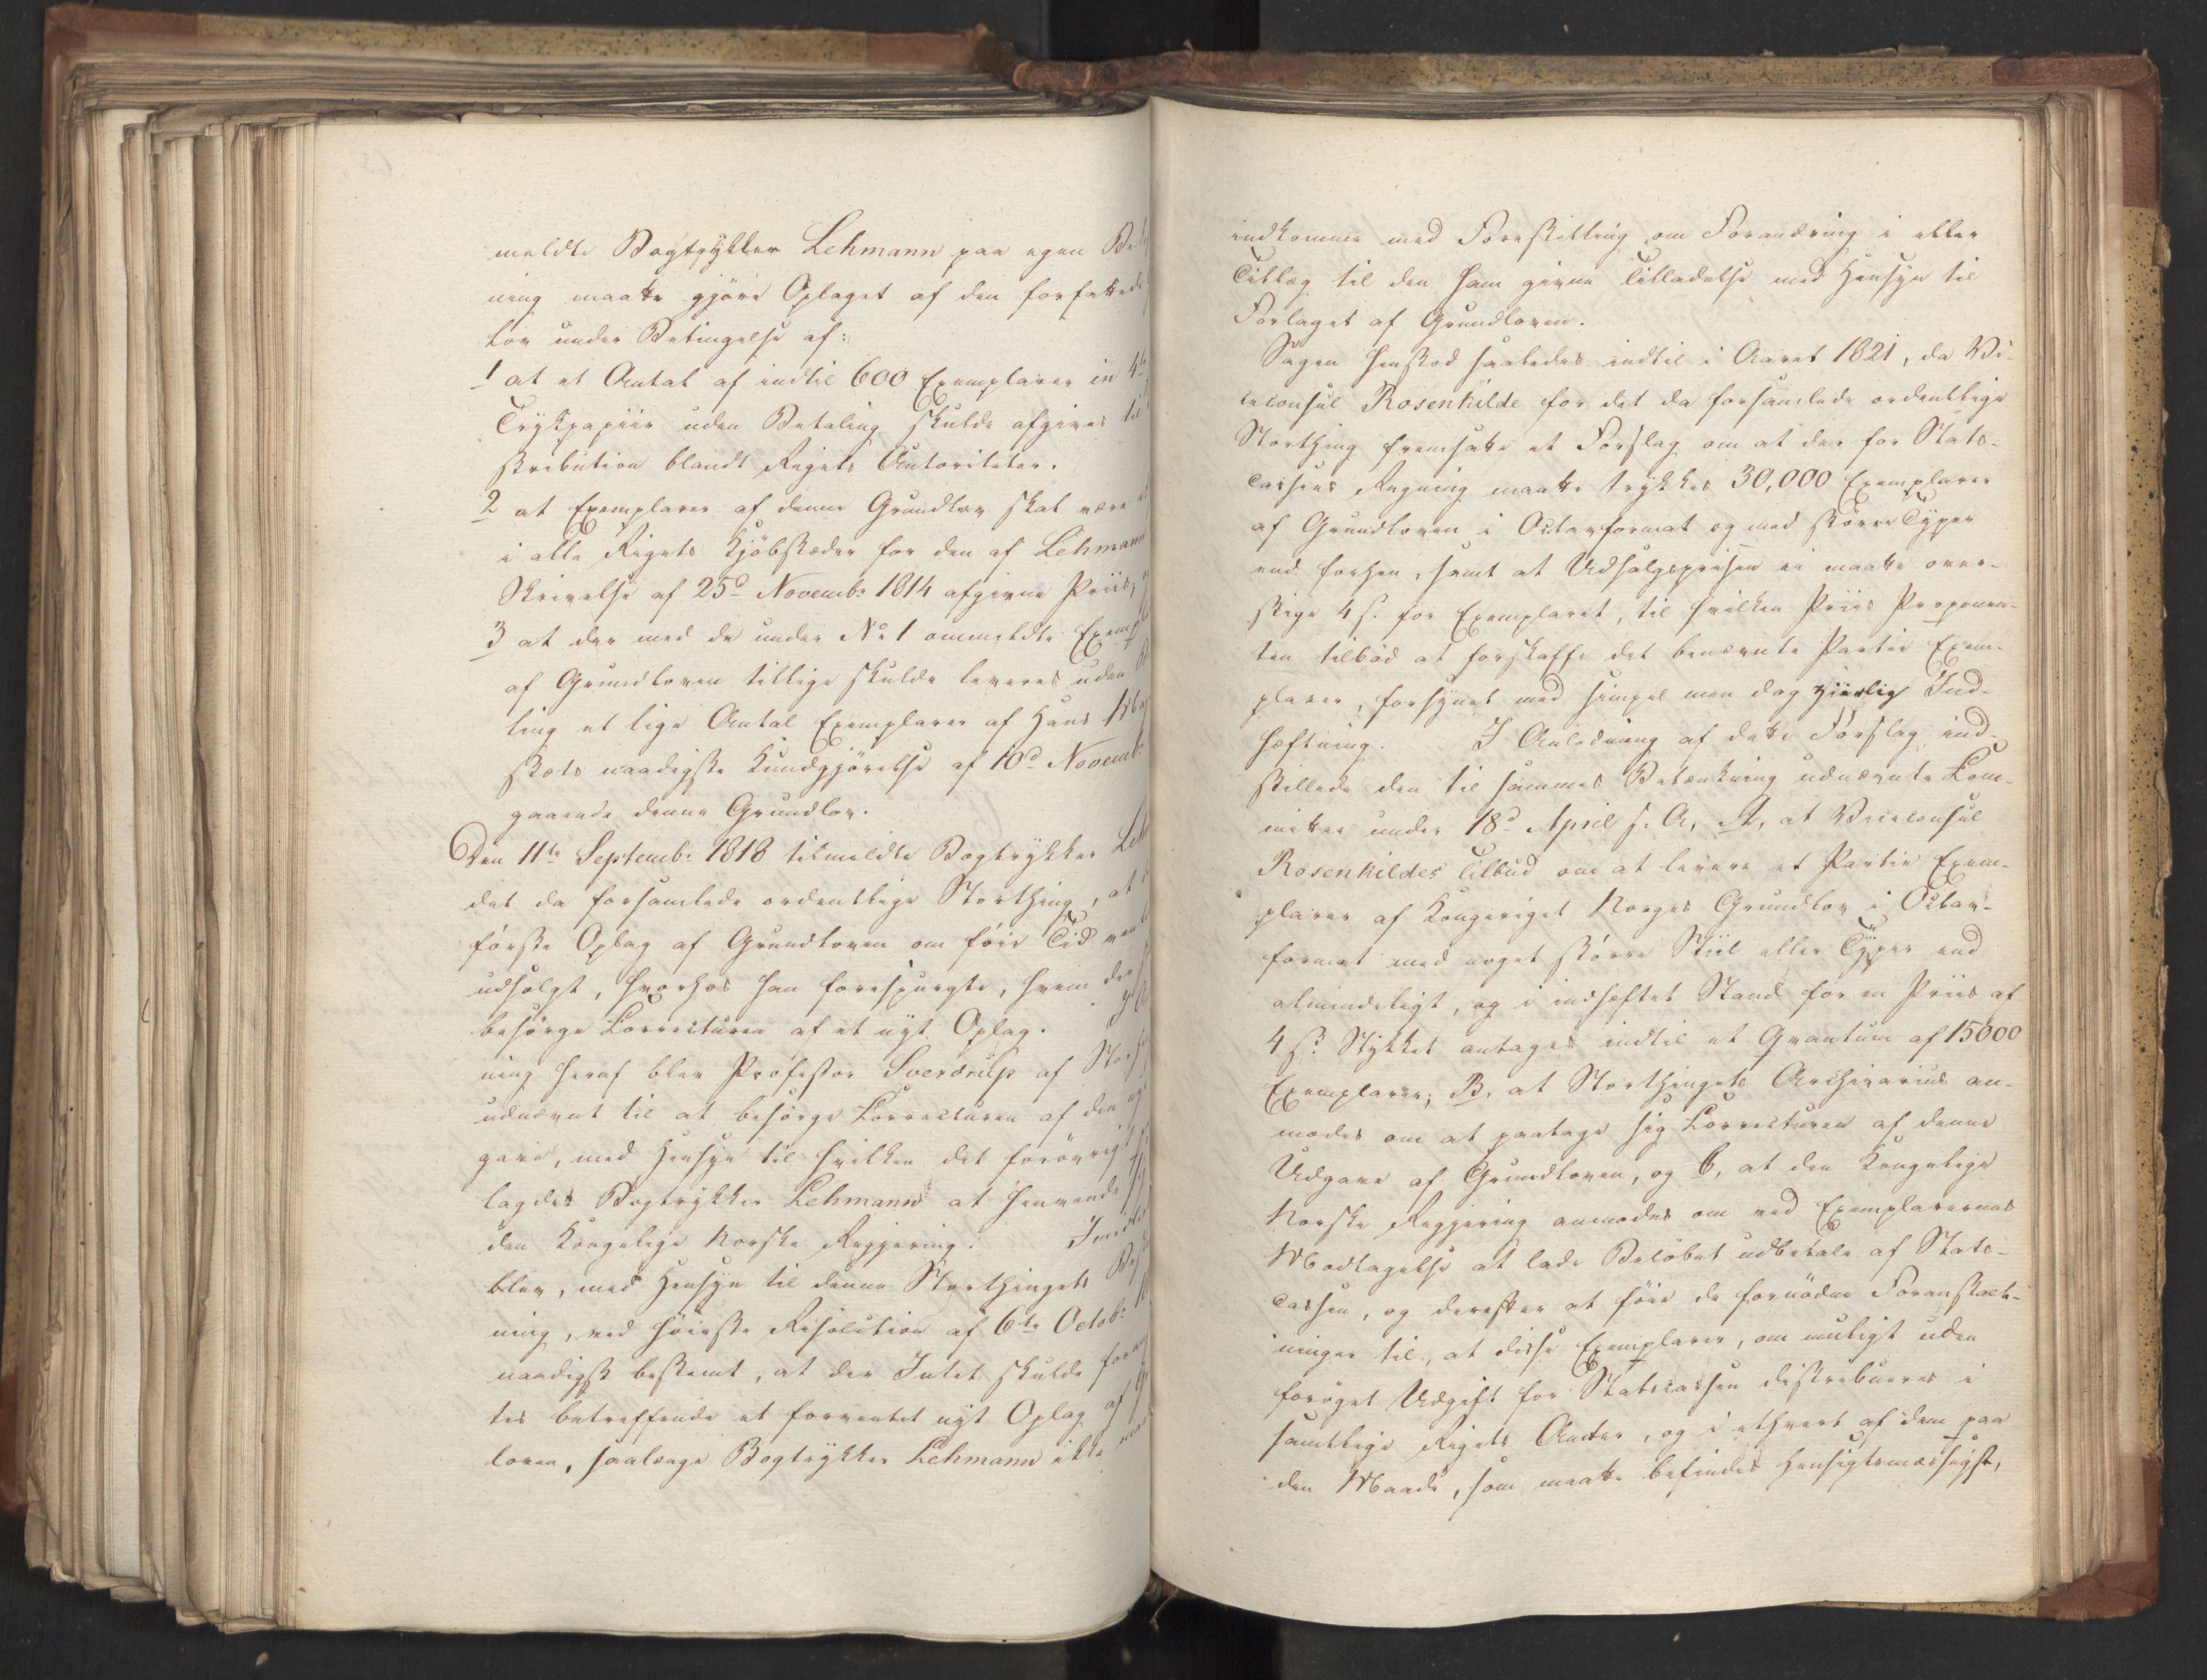 meldte Bogtrykker Lehmann paa egen Be
ning maatte gjöre Oplaget af den forfattede
lov under Betingelse af:
1 at et Antal af indtil 600 Exemplarer in 4to
Trykpapiir uden Betaling skulde afgives til
stribution blandt Rigets Autoriteter.
2 at Exemplarer af denne Grundlov skal være
i alle Rigets Kjöbstæder for den af Lehmann
Skrivelse af 25d Novemb: 1814 afgivne Priis,
3 at der med de under No 1 ommeldte Exemp
af Grundloven tillige skulde leveres uden
ling et lige Antal Exemplarer af Hans Ma
stæts naadigste Kundgjörelse af 10d Novemb:
gaaende denne Grundlov.
Den 11te Septemb: 1818 tilmeldte Bogtrykker Leh
det da forsamlede ordentlige Storthing, at
förste Oplag af Grundloven om föie Tid
udsolgt, hvorhos han forespurgte, hvem der
besörge Correcturen af et nyt Oplag.
ning heraf blev Professor Sverdrup af Stor
udnævnt til at besörge Correcturen af den
gave, med Hensyn til hvilken det forövrigt
lagdes Bogtrykker Lehmann at henvende
den Kongelige Norske Regjering. Imid
blev, med Hensyn til denne Storthingets
ning, ved höieste Resolution af 6te Octob:
naadigst bestemt, at der Intet skulde
tes betreffende et forventet nyt Oplag af
loven, saalænge Bogtrykker Lehmann ikke
indkomme med Forestilling om Forandring i eller
Tillæg til den ham givne Tilladelse med Hensyn til
Forlaget af Grundloven.
Sagen henstod saaledes indtil i Aaret 1821, da Vi-
ceconsul Rosenkilde for det da forsamlede ordentlige
Storthing fremsatte et Forslag om at der for Stats-
cassens Regning maatte trykkes 30,000 Exemplarer
af Grundloven i Octavformat og med större Typer
end forhen, samt at Udsalgsprisen ei maatte over-
stige 4 s. for Exemplaret, til hvilken Priis Proponen-
ten tilböd at forskaffe det benævnte Partie Exem-
plarer, forsynet med simpel men dog ziirlig Ind-
hæftning. I Anledning af dette Forslag ind-
stillede den til sammes Betænkning udnævnte Com-
mittee under 18d April s. A, A, at Viceconsul
Rosenkildes Tilbud om at levere et Partie Exem-
plarer af Kongeriget Norges Grundlov i Octav-
format med noget större Stiil eller Typer end
almindeligt, og i indhæftet Stand for en Priis af
4 s. Stykket antages indtil et Qvantum af 15000
Exemplarer; B, at Storthingets Archivarius an-
modes om at paatage sig Correcturen af denne
Udgave af Grundloven, og C, at den Kongelige
Norske Regjering anmodes om ved Exemplarernes
Modtagelse at lade Belöbet udbetale af Stats-
cassen, og derefter at föie de fornödne Foranstalt-
ninger til, at disse Exemplarer, om muligt uden
foröget Udgift for Statscassen distribueres i
samtlige Rigets Amter, og i ethvert af dem paa
den Maade, som maatte befindes hensigtsmæssigst,